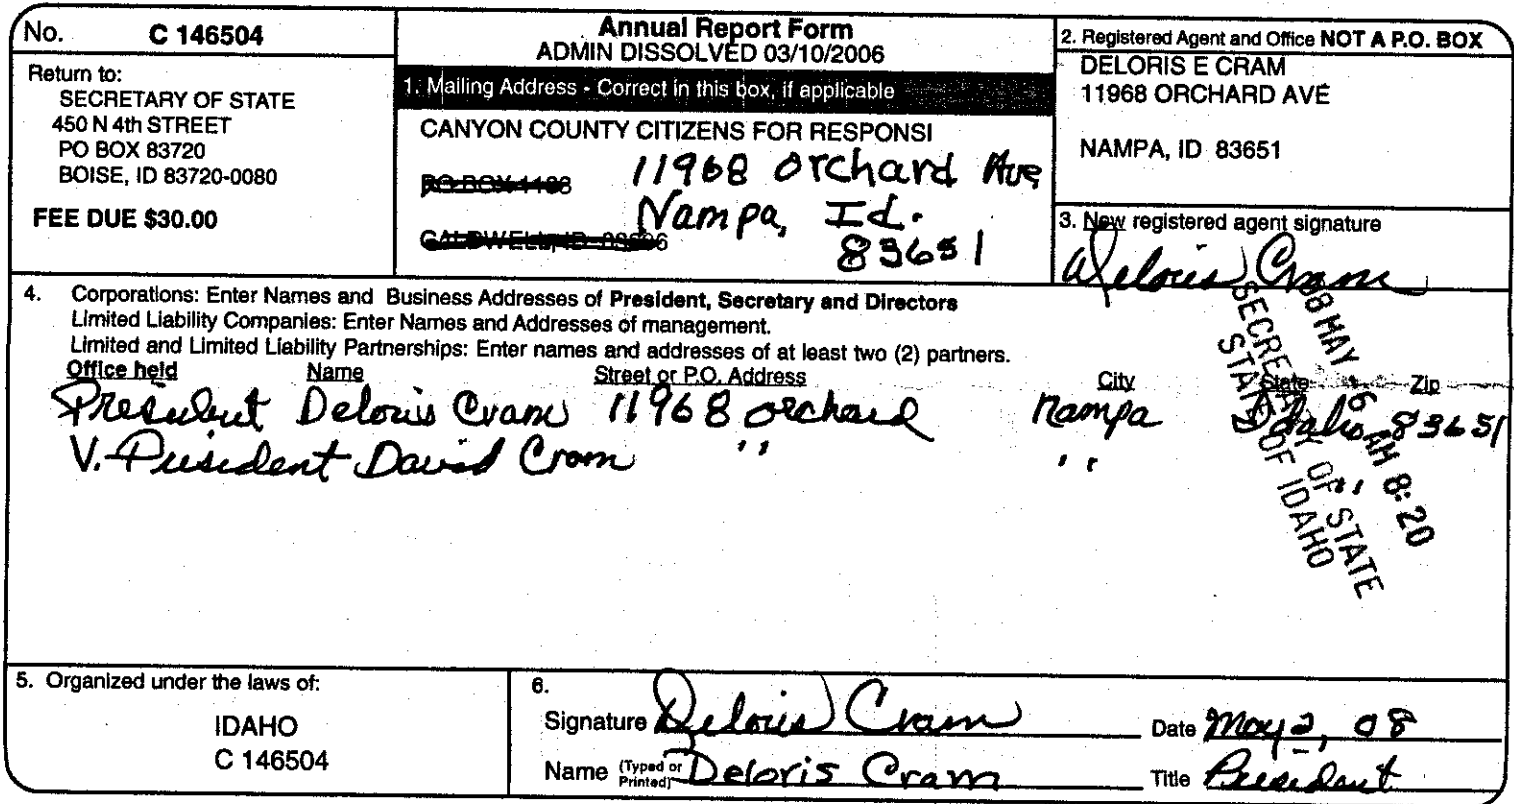 No. C 146504
Return to:
SECRETARY OF STATE
450 N 4th STREET
PO BOX 83720
BOISE, ID 83720-0080
FEE DUE $30.00
Annual Report Form
ADMIN DISSOLVED 03/10/2006
1. Mailing Address - Correct in this box, if applicable
CANYON COUNTY CITIZENS FOR RESPONSI
PO BOX
11968 Orchard Ave
Nampa, Id.
CALDWELL, ID
83651
2. Registered Agent and Office NOT A P.O. BOX
DELORIS E CRAM
11968 ORCHARD AVE
NAMPA, ID 83651
3. New registered agent signature
Deloris Cram
4. Corporations: Enter Names and Business Addresses of President, Secretary and Directors
Limited Liability Companies: Enter Names and Addresses of management.
Limited and Limited Liability Partnerships: Enter names and addresses of at least two (2) partners.
Office held Name Street or P.O. Address City State Zip
President Deloris Cram 11968 Orchard Nampa Idaho 83651
V. President David Cram " " "
08 MAY -6 AM 8:20
SECRETARY OF STATE
STATE OF IDAHO
5. Organized under the laws of:
IDAHO
C 146504
6.
Signature Deloris Cram Date May 2, 08
Name (Typed or Printed) Deloris Cram Title President